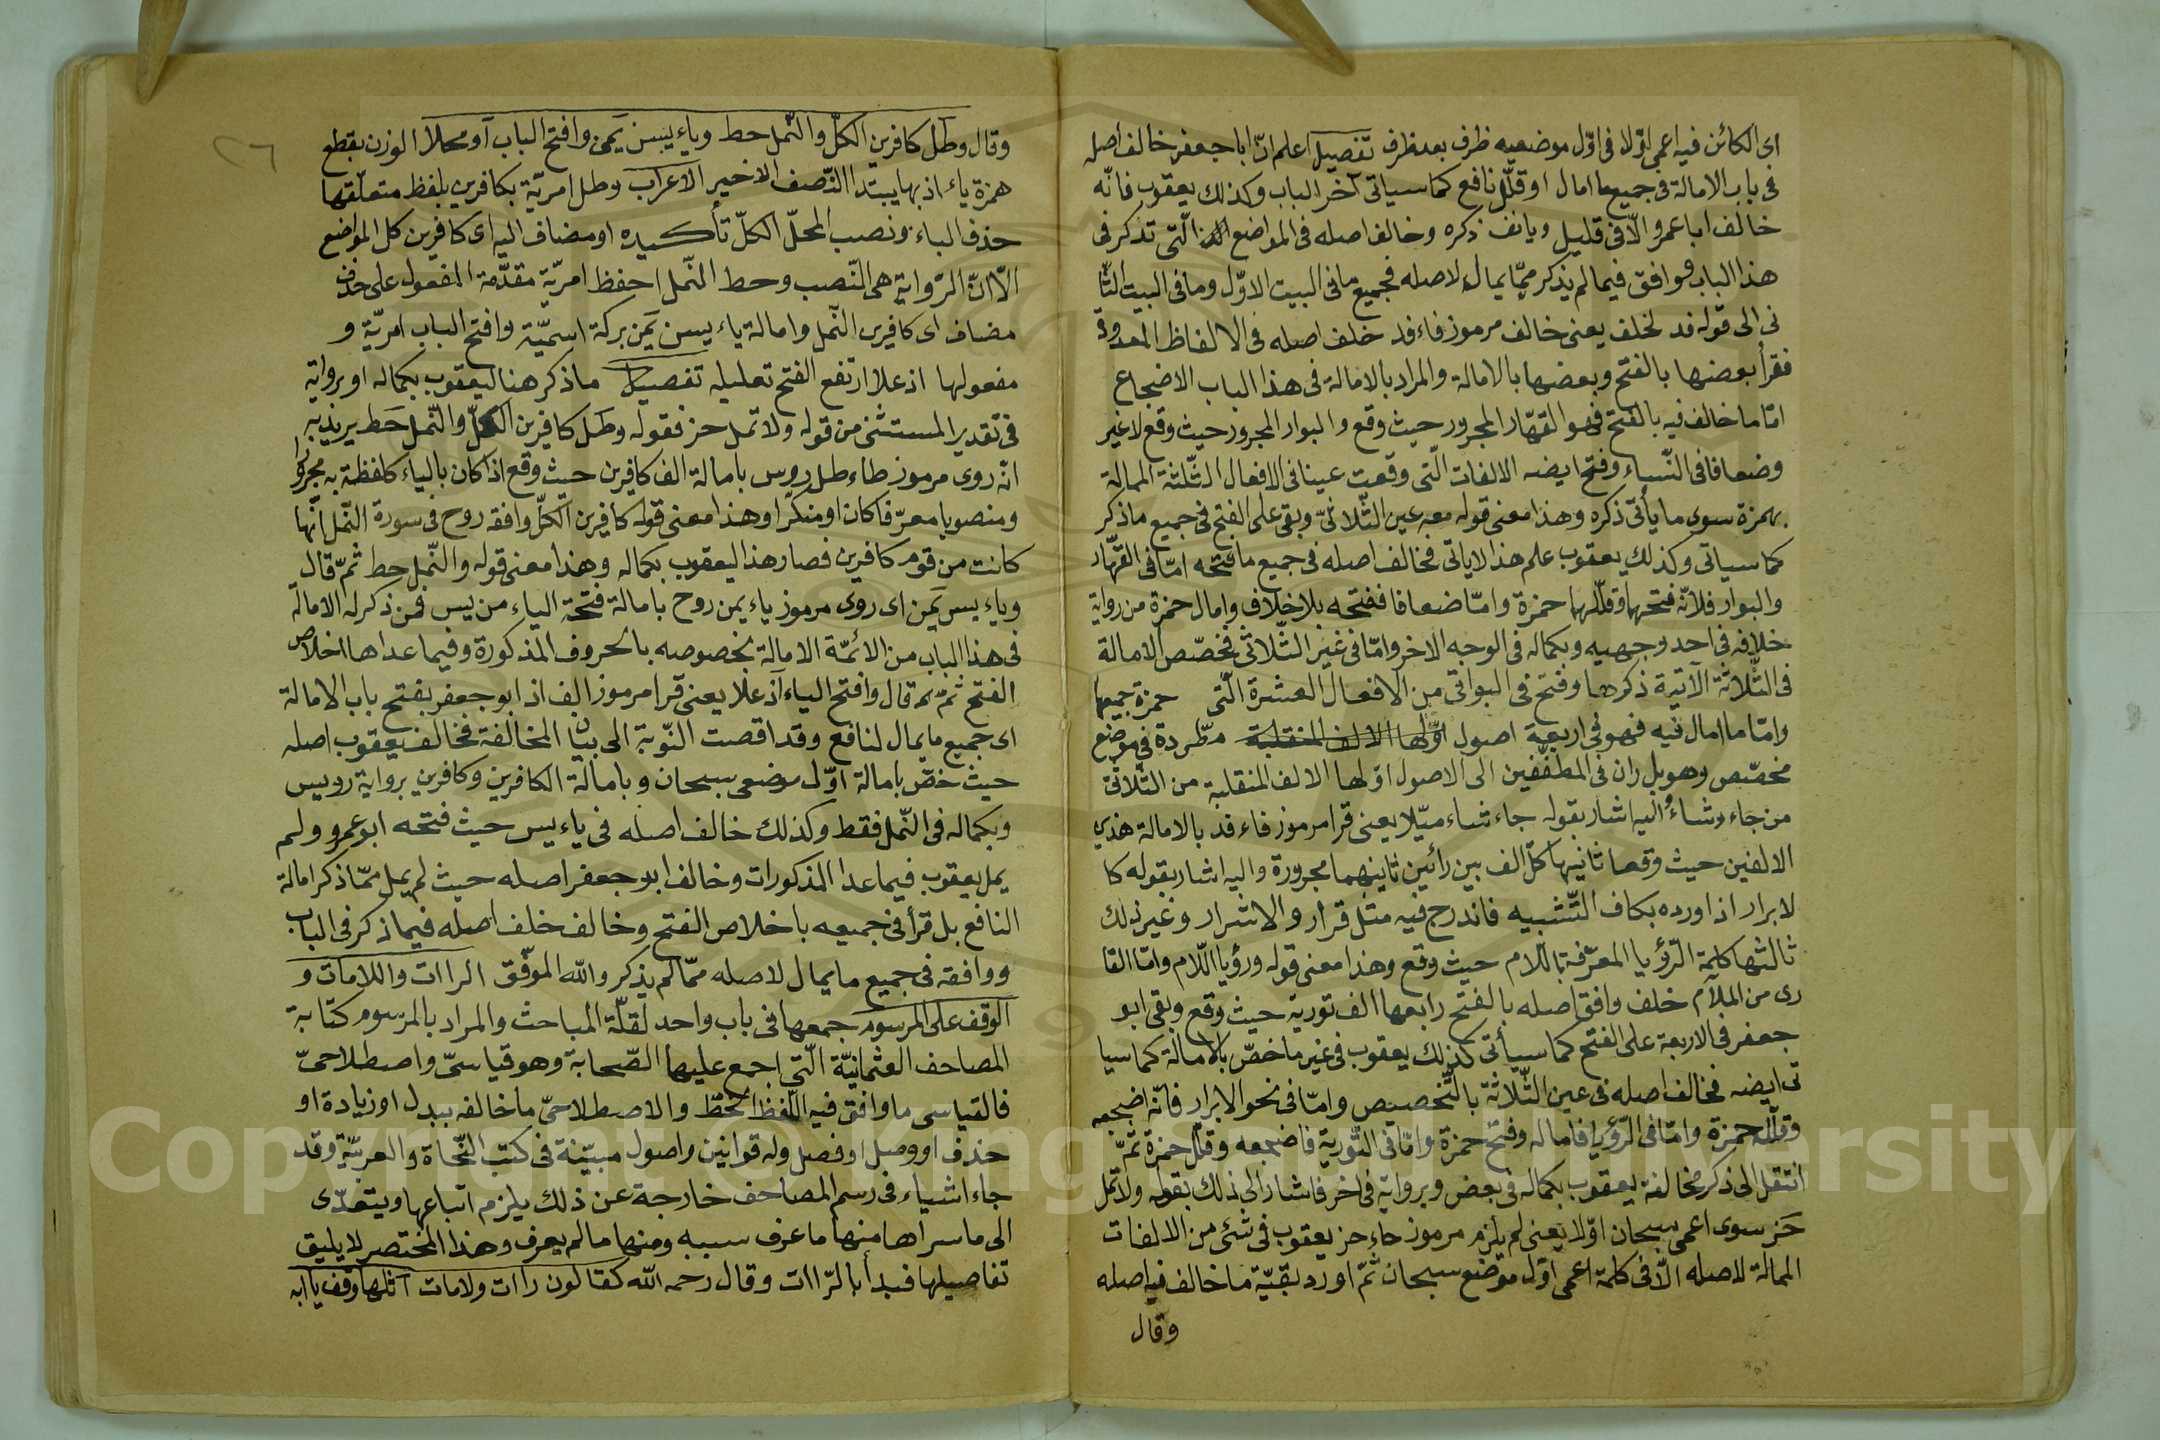 اى الكائن فيه اعمى اوّلا فى اوّل موضعيه ظرف بعد ظرف تفصيل اعلم انّ ابا جعفر خالف اصله
فى باب الامالة فى جميع ما امال او قلّل نافع كما سياتى آخر الباب وكذلك يعقوب فانّه
خالف ابا عمرو الّا فى قليل ويانف ذكره وخالف اصله فى المواضع الّتى تذكر فى
هذا الباب فوافق فيما لم يذكر ممّا يمال لاصله فجميع ما فى البيت الاوّل وما فى البيت الثّا
نى الى قوله فد لخلف يعنى خالف مرموز فاء فد خلف اصله فى الالفاظ المعدودة
فقرأ بعضها بالفتح وبعضها بالامالة والمراد بالامالة فى هذا الباب الاضجاع
امّا ما خالف فيه بالفتح فهو القهّار المجرور حيث وقع والبوار المجرور حيث وقع لا غير
وضعافا فى النّساء وفتح ايضه الالفات الّتى وقعت عينا فى الافعال الثّلثة الممالة
بهمزة سوى ما يأتى ذكره وهذا معنى قوله معه عين الثّلاثىّ وبقى على الفتح فى جميع ما ذكر
كما سياتى وكذلك يعقوب علم هذا لاياتى فخالف اصله فى جميع ما فتحه امّا فى القهّار
والبوار فلانّه فتحها وقلّلها حمزة وامّا ضعافا ففتحه بلا خلاف وامال حمزة من رواية
خلافه فى احد وجهيه وبكماله فى الوجه الاخر وامّا فى غير الثّلاثى فخصّص الامالة
فى الثّلاثة الآتية ذكرها وفتح فى البواقى من الافعال العشرة الّتى حمزة جميعا
وامّا ما امال فيه فهو فى اربعة اصول اوّلها الالف المنقلبة مطّردة فى موضع
مخصّص وهو بل ران فى المطفّفين الى الاصول اوّلها الالف المنقلبة من الثّلاثى
من جاء وشاء واليه اشار بقوله جاء شاء ميّلا يعنى قرا مرموز فاء فد بالامالة هذى
الالفين حيث وقعا ثانيها كلّ الف بين رائين ثانيهما مجرورة واليه اشار بقوله كا
لابرار اذا اورده بكاف التّشبيه فاندرج فيه مثل قرار والاشرار وغير ذلك
ثالثها كلمة الرّؤيا المعرّفة باللام حيث وقع وهذا معنى قوله ورؤيا اللّام وامّا القا
رى من الملآم خلف وافق اصله بالفتح رابعها الف تورية حيث وقع وبقى ابو
جعفر فى الاربعة على الفتح كما سيأتى كذلك يعقوب فى غير ما خصّ بالامالة كما سيا
تى ايضه فخالف اصله فى عين الثّلاثة بالتّخصيص وامّا فى نحو الابرار فانّه اضجعه
وقلّله حمزة وامّا فى الرّؤيا فاماله وفتح حمزة وامّا فى التّورية فاضجعه وقلّل حمزة ثمّ
انتقل الى ذكر مخالفة يعقوب بكماله فى بعض وبرواية فى اخر فاشار الى ذلك بقوله ولا تمل
حز سوى اعمى سبحان اوّلا يعنى لم يلزم مرموز حاء حز يعقوب فى شئ من الالفات
الممالة لاصله الّا فى كلمة اعمى اوّل موضع سبحان ثمّ اورد بقيّة ما خالف فيه اصله
وقال
وقال وطل كافرين الكلّ والنّمل حط وياء يس يمن وافتح الباب أو محلا الوزن بقطع
همزة ياء اذ بها يبتدا النّصف الاخير الاعراب وطل امريّة بكافرين بلفظ متعلّقها
حذف الباء ونصب المحلّ الكلّ تأكيده او مضاف اليه اى كافرين كل المواضع
الّا انّ الرّواية هى النّصب وحط النّمل احفظ امريّة مقدّمة المفعول على حذف
مضاف اى كافرين النّمل وامالة ياء يسن يمن بركة اسميّة وافتح الباب امريّة و
مفعولها اذ علا ارتفع الفتح تعليله تفصيل ما ذكر هنا ليعقوب بكماله او برواية
فى تقدير المستثنى من قوله ولا تمل حز فقوله وطل كافرين الكلّ والنّمل حط يريد به
انّه روى مرموز طاء طل رويس بامالة الف كافرين حيث وقع اذا كان بالياء كلفظة به مجرورا
ومنصوبا معرّفا كان او منكّرا وهذا معنى قوله كافرين الكلّ وافقه روح فى سورة النّمل انّها
كانت من قوم كافرين فصار هذا ليعقوب بكماله وهذا معنى قوله والنّمل حط ثمّ قال
وياء يس يمن اى روى مرموز ياء يمن روح بامالة فتحة الياء من يس فمن ذكر له الامالة
فى هذا الباب من الائمّة الامالة بخصوصه بالحروف المذكورة وفيما عداها اخلاص
الفتح ثمّ قال وافتح الياء اذ علا يعنى قرا مرموز الف اذ ابو جعفر بفتح باب الامالة
اى جميع ما يمال لنافع وقد اقصت النّوبة الى بيان المخالفة فخالف يعقوب اصله
حيث خصّ بامالة اوّل موضعى سبحان وبامالة الكافرين وكافرين برواية رويس
وبكماله فى النّمل فقط وكذلك خالف اصله فى ياء يس حيث فتحه ابو عمرو ولم
يمل يعقوب فيما عدا المذكورات وخالف ابو جعفر اصله حيث لم يمل ممّا ذكر امالة
النافع بل قرأ فى جميعه باخلاص الفتح وخالف خلف اصله فيما ذكر فى الباب
ووافقه فى جميع ما يمال لاصله ممّا لم يذكر والله الموفّق الراات واللامات و
الوقف على المرسوم جمعها فى باب واحد لقلّة المباحث والمراد بالمرسوم كتابة
المصاحف العثمانيّة الّتى اجمع عليها الصّحابة وهو قياسىّ واصطلاحىّ
فالقياسى ما وافق فيه اللّفظ الخطّ والاصطلاحىّ ما خالفه ببدل او زيادة او
حذف او وصل او فصل وله قوانين واصول مبيّنة فى كتب النّحاة والعربيّة وقد
جاء اشياء فى رسم المصاحف خارجة عن ذلك يلزم اتباعها ويتعدّى
الى ما سواها منها ما عرف سببه ومنها ما لم يعرف وهذا المختصر لا يليق
تفاصيلها فبدأ بالرّاات وقال رحمه الله كقالون راات ولامات اتلها وقف يا ابه
Copyright © King Saud University